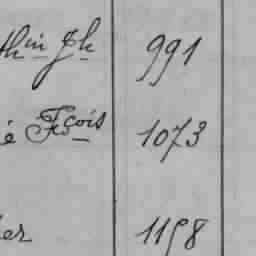 thin Jh 991
é Fçois 1073
er 1158